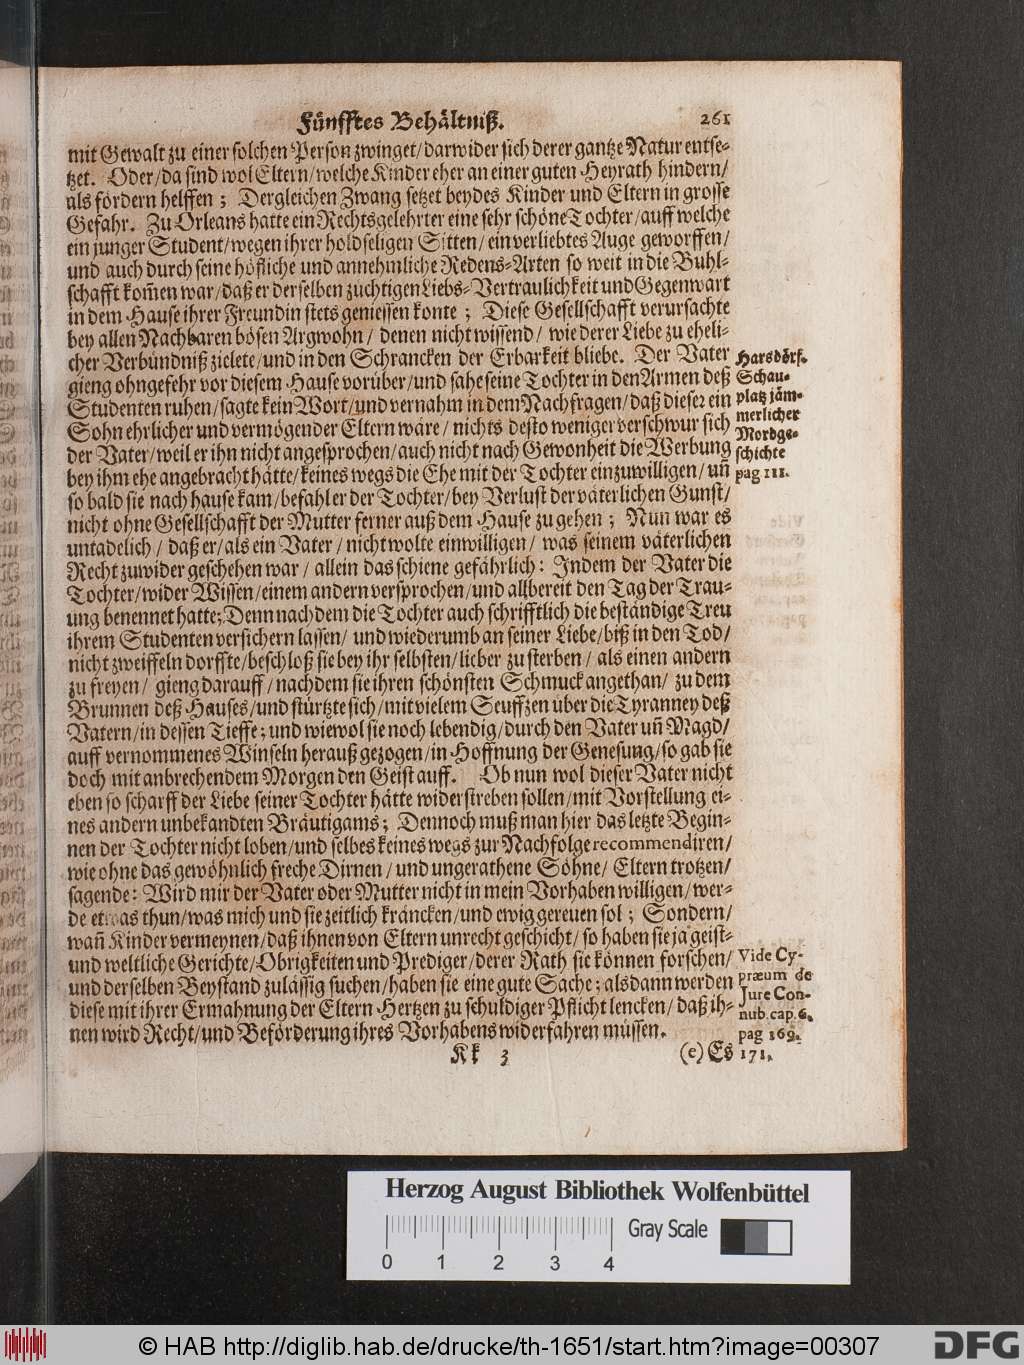 Fünfftes Behältniß. 261
mit Gewalt zu einer solchen Person zwinget/darwider sich derer gantze Natur entse-
tzet. Oder/da sind wol Eltern/welche Kinder eher an einer guten Heyrath hindern/
als fördern helffen; Dergleichen Zwang setzet beydes Kinder und Eltern in grosse
Gefahr. Zu Orleans hatte ein Rechtsgelehrter eine sehr schöne Tochter/auff welche
ein junger Student/wegen ihrer holdseligen Sitten/ein verliebtes Auge geworffen/
und auch durch seine höfliche und annehmliche Redens-Arten so weit in die Buhl-
schafft kom̃en war/daß er derselben zuchtigen Liebs-Vertraulichkeit und Gegenwart
in dem Hause ihrer Freundin stets geniessen konte; Diese Gesellschafft verursachte
bey allen Nachbaren bösen Argwohn/denen nicht wissend/wie derer Liebe zu eheli-
cher Verbündniß zielete/und in den Schrancken der Erbarkeit bliebe. Der Vater
gieng ohngefehr vor diesem Hause vorüber/und sahe seine Tochter in den Armen deß
Studenten ruhen/sagte kein Wort/und vernahm in dem Nachfragen/daß dieser ein
Sohn ehrlicher und vermögender Eltern wäre/nichts desto weniger verschwur sich
der Vater/weil er ihn nicht angesprochen/auch nicht nach Gewonheit die Werbung
bey ihm ehe angebracht hätte/keines wegs die Ehe mit der Tochter einzuwilligen/un̄
so bald sie nach hause kam/befahl er der Tochter/bey Verlust der väterlichen Gunst/
nicht ohne Gesellschafft der Mutter ferner auß dem Hause zu gehen; Nun war es
untadelich/daß er/als ein Vater/nicht wolte einwilligen/was seinem väterlichen
Recht zuwider geschehen war/allein das schiene gefährlich: Indem der Vater die
Tochter/wider Wissen/einem andern versprochen/und allbereit den Tag der Trau-
ung benennet hatte; Denn nachdem die Tochter auch schrifftlich die beständige Treu
ihrem Studenten versichern lassen/und wiederumb an seiner Liebe/biß in den Tod/
nicht zweiffeln dorffte/beschloß sie bey ihr selbsten/lieber zu sterben/als einen andern
zu freyen/gieng darauff/nachdem sie ihren schönsten Schmuck angethan/zu dem
Brunnen deß Hauses/und stürtzte sich/mit vielem Seuffzen über die Tyranney deß
Vatern/in dessen Tieffe; und wiewol sie noch lebendig/durch den Vater un̄ Magd/
auff vernommenes Winseln herauß gezogen/in Hoffnung der Genesung/so gab sie
doch mit anbrechendem Morgen den Geist auff. Ob nun wol dieser Vater nicht
eben so scharff der Liebe seiner Tochter hätte widerstreben sollen/mit Vorstellung ei-
nes andern unbekandten Bräutigams; Dennoch muß man hier das letzte Begin-
nen der Tochter nicht loben/und selbes keines wegs zur Nachfolge recommendiren/
wie ohne das gewöhnlich freche Dirnen/und ungerathene Söhne/Eltern trotzen/
sagende: Wird mir der Vater oder Mutter nicht in mein Vorhaben willigen/wer-
de etwas thun/was mich und sie zeitlich kräncken/und ewig gereuen sol; Sondern/
wan̄ Kinder vermeynen/daß ihnen von Eltern unrecht geschicht/so haben sie ja geist-
und weltliche Gerichte/Obrigkeiten und Prediger/derer Rath sie können forschen/
und derselben Beystand zulässig suchen/haben sie eine gute Sache; alsdann werden
diese mit ihrer Ermahnung der Eltern Hertzen zu schuldiger Pflicht lencken/daß ih-
nen wird Recht/und Beförderung ihres Vorhabens widerfahren müssen.
Kk 3 (e) Es
Harsdörf.
Schau-
platz jäm-
merlicher
Mordge-
schichte
pag 111.
Vide Cy-
præum de
Jure Con-
nub. cap. 6.
pag 169.
171.
Herzog August Bibliothek Wolfenbüttel
Gray Scale
0 1 2 3 4
© HAB http://diglib.hab.de/drucke/th-1651/start.htm?image=00307
DFG